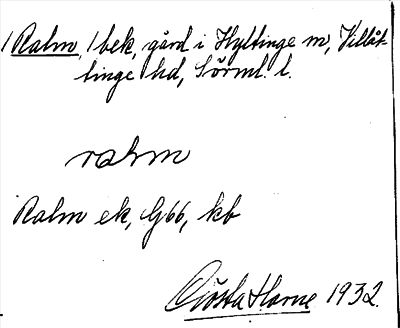 1 Ralm, 1 bek, gård i Hyltinge sn, Villåt-
tinge hd, Sörml. l.
ralm
Ralm ek, G66, kb
Gösta Harne 1932.